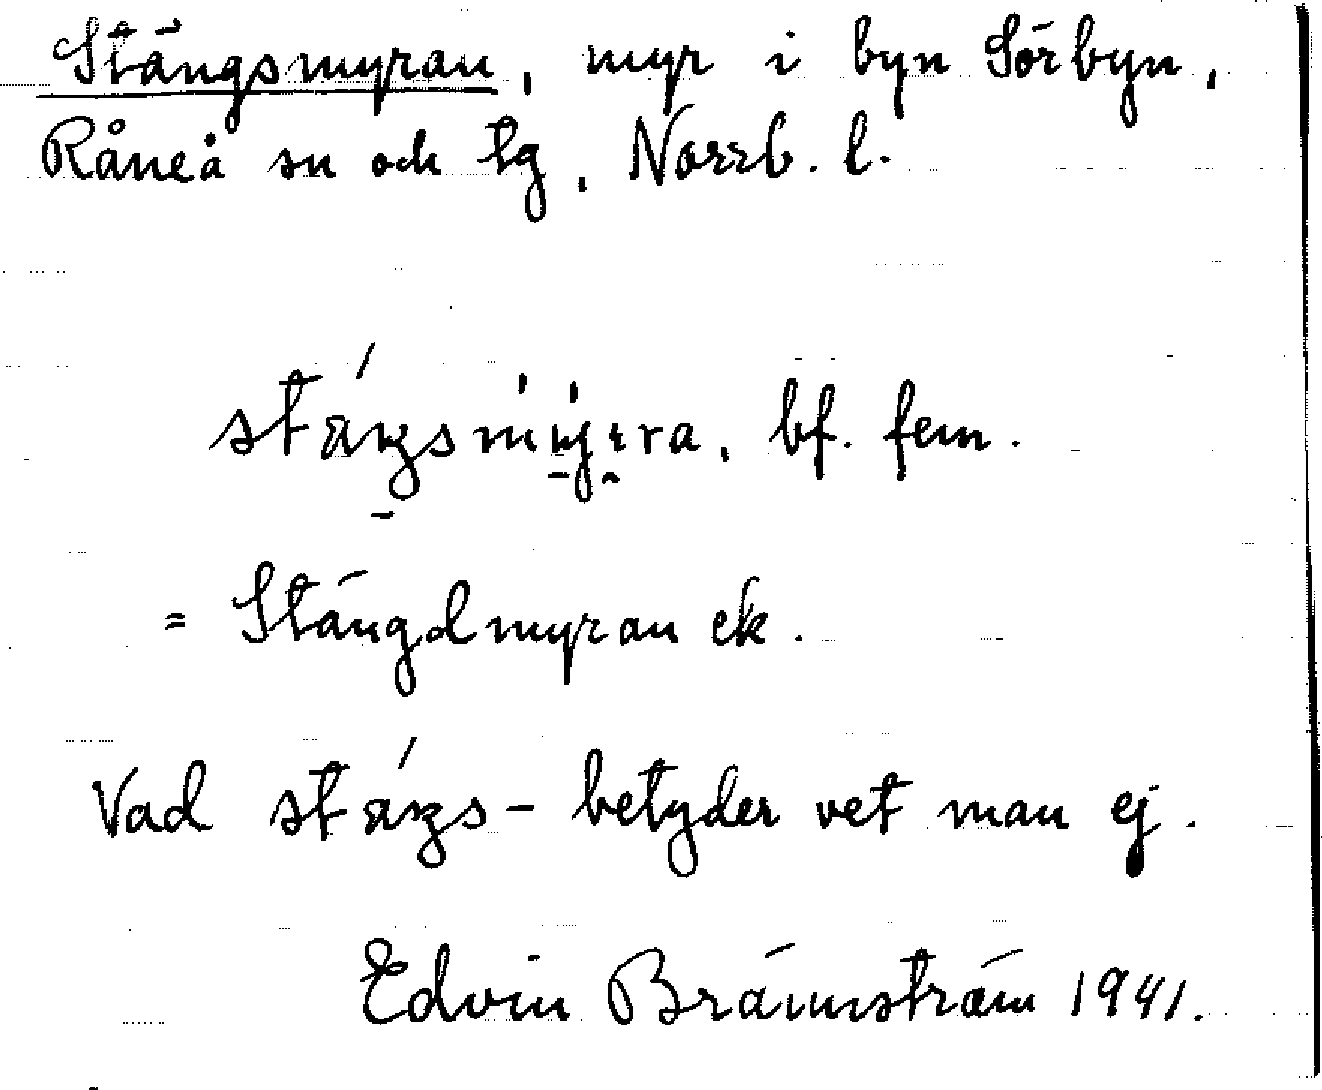 Stängsmyran, myr i byn Sörbyn,
Råneå sn och tg, Norrb. l.
bf. fem.
= Stängdmyran ek.
Vad betyder vet man ej.
Edvin Brännström 1941.